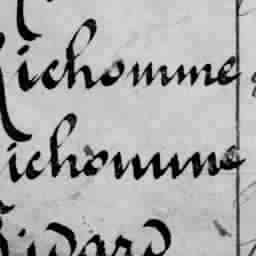 Richomme
Richomme
Sidard